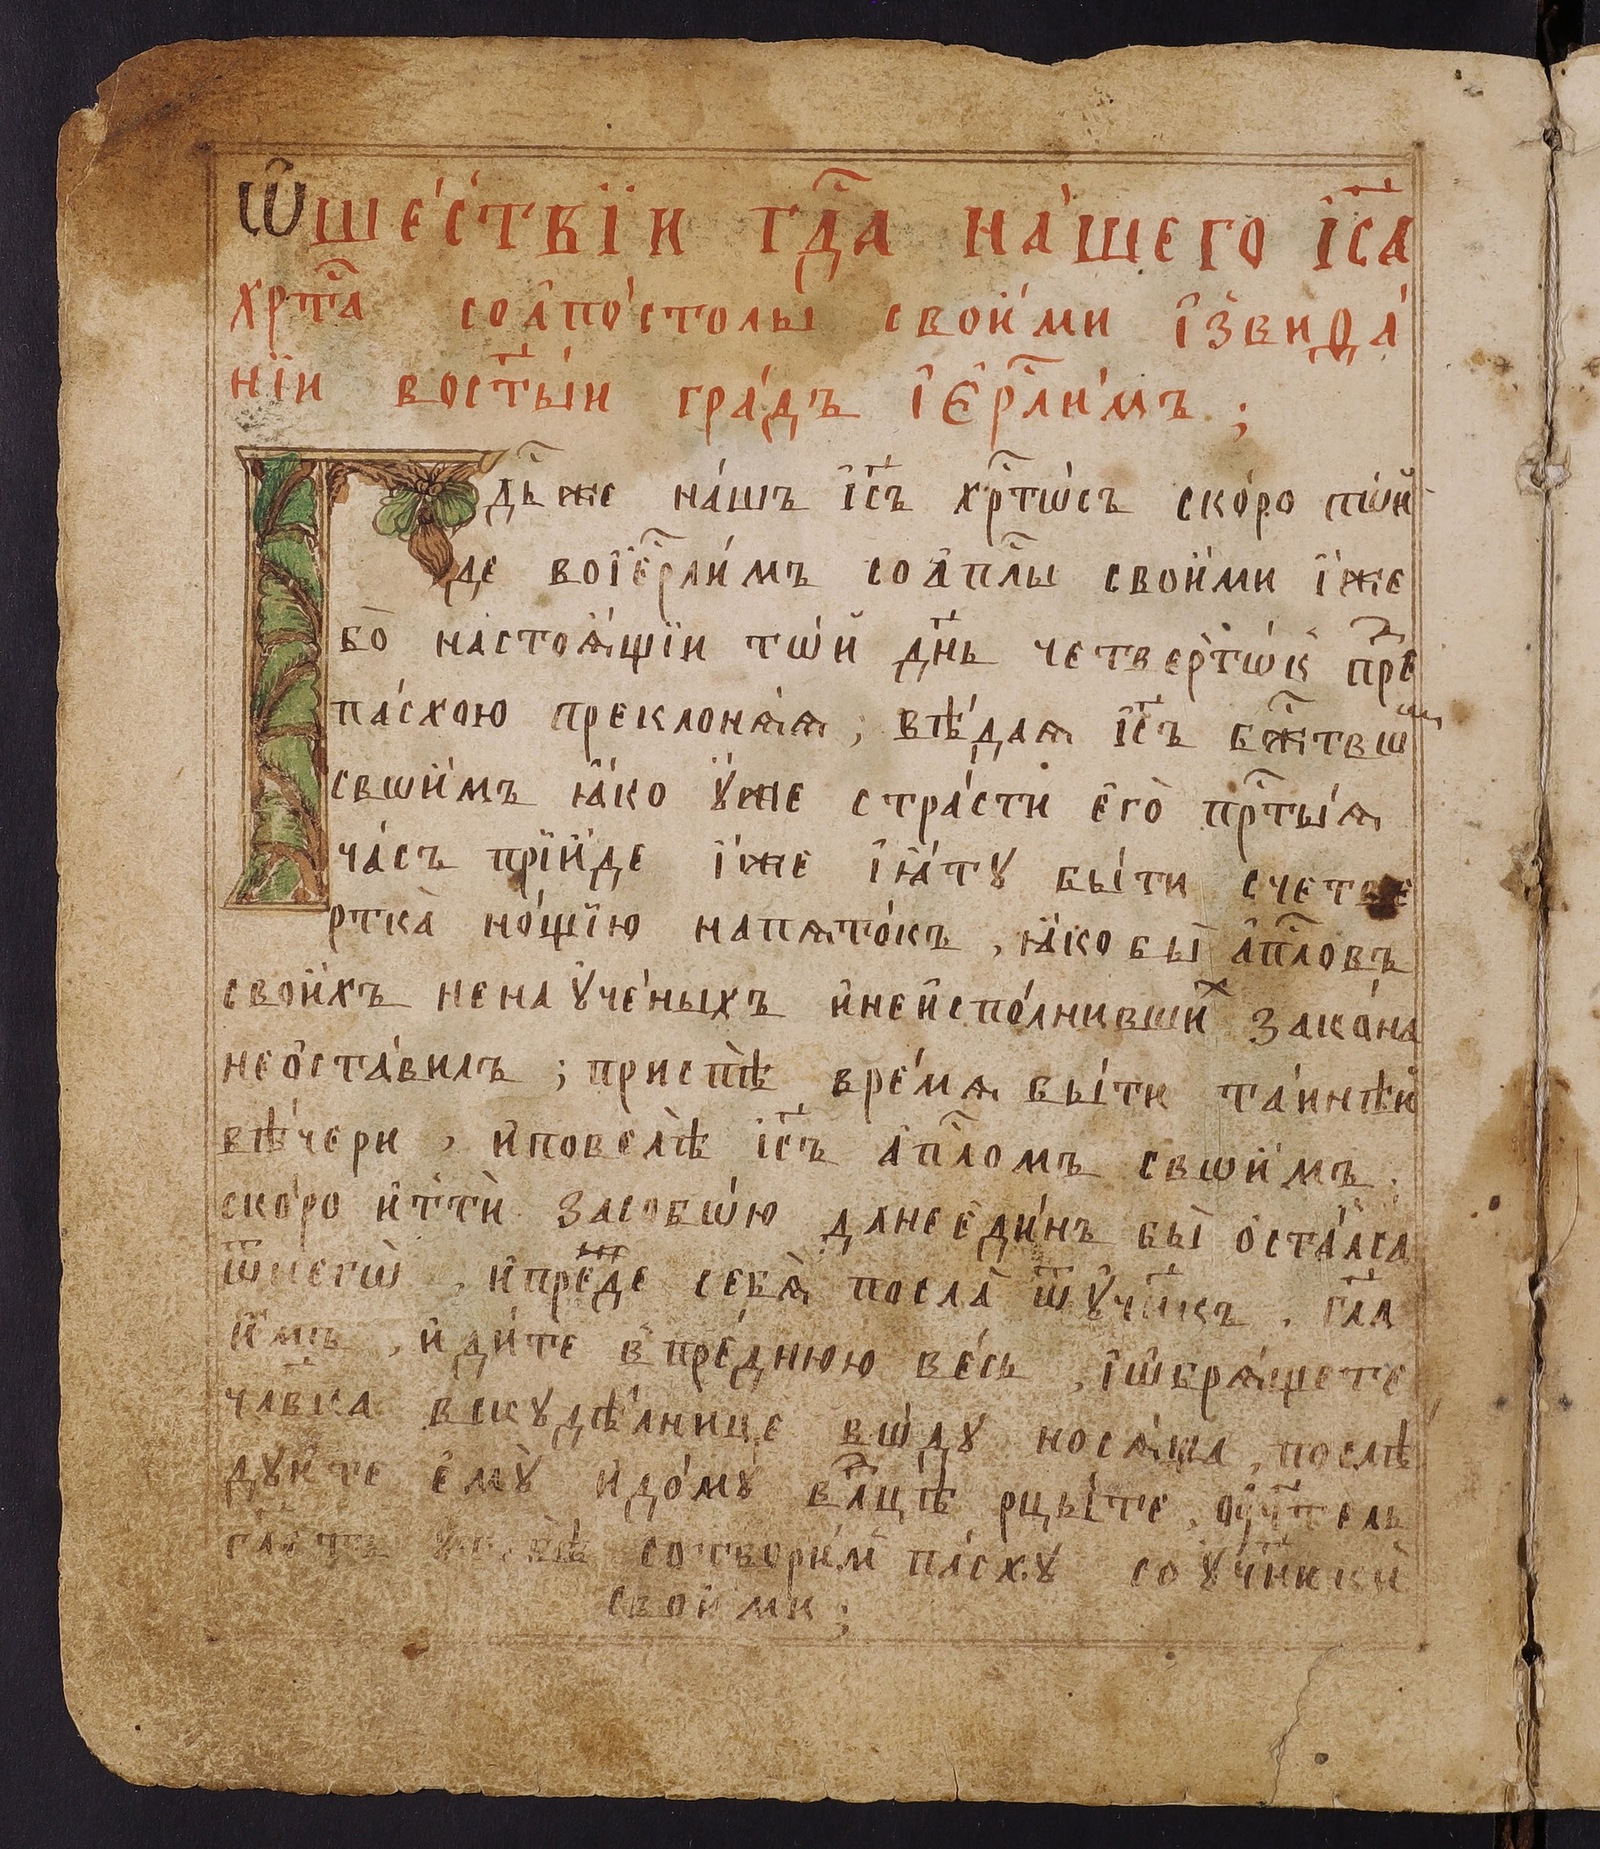 Ѡ҆ ше́ствїи гдⷭ҇а на́шего і҆с҃а
хрⷭ҇та̀ соа҆по́столы свои́ми и҆з̾вида́
нїи востⷭ҇ы́и гра́дъ і҆є҆рⷭ҇ли́мъ ;
Гдⷭ҇ь же на́шъ і҆с҃ъ хрⷭ҇то́съ ско́ро пѡ́и
де воі҆є҆рⷭ҇ли́мъ соа҆пⷭ҇лы свои́ми і҆́же
бо̀ настоѧ́щїи тѡ́й дн҃ь четверто́к пре
па́схою преклонѧ́ѧ , вѣ́даѧ і҆с҃ъ бжⷭ҇твѡⷨ
свѡи́мъ ꙗ҆́ко ꙋ҆́же стра́сти є҆гѡ̀ прⷭ҇ты́ѧ
ча́съ прїи́де і҆́же і҆ꙗ҆́тꙋ бы́ти счетве
ртка̀ но́щїю напѧто́къ , ꙗ҆́кобы̀ а҆пⷭ҇ловъ
свои́хъ ненаꙋ҆че́ныхъ и҆неи҆спо́лнивши́ⷯ зако́на
нео҆ста́вилъ ; приспѣ̀ вре́мѧ бы́ти та́инѣи
вѣ́чери , и҆повелѣ̀ і҆с҃ъ а҆пⷭ҇ломъ свѡи́мъ .
ско́ро и҆ттѝ засобѡ́ю данее҆ди́нъ бы̀ ѻ҆ста́лсѧ
ѿнегѡ̀ , и҆пре́де себѧ̀ посла̀ ѿꙋ҆чн҃къ . гл҃ѧ
и҆̀мъ , и҆ди́те впре́днюю ве́сь , і҆ѡ҆брѧ́щете
чл҃вка вскꙋдѣ́лнице вѡ́дꙋ носѧ́ща , послѣ
дꙋ́ите є҆мꙋ̀ и҆до́мꙋ влⷣцѣ рцы́те , ᲂу҆чт҃ель
гл҃етъ ꙋ҆тебѐ сотвори́мⷨ па́схꙋ соꙋ҆чн҃ики
свои́ми ;